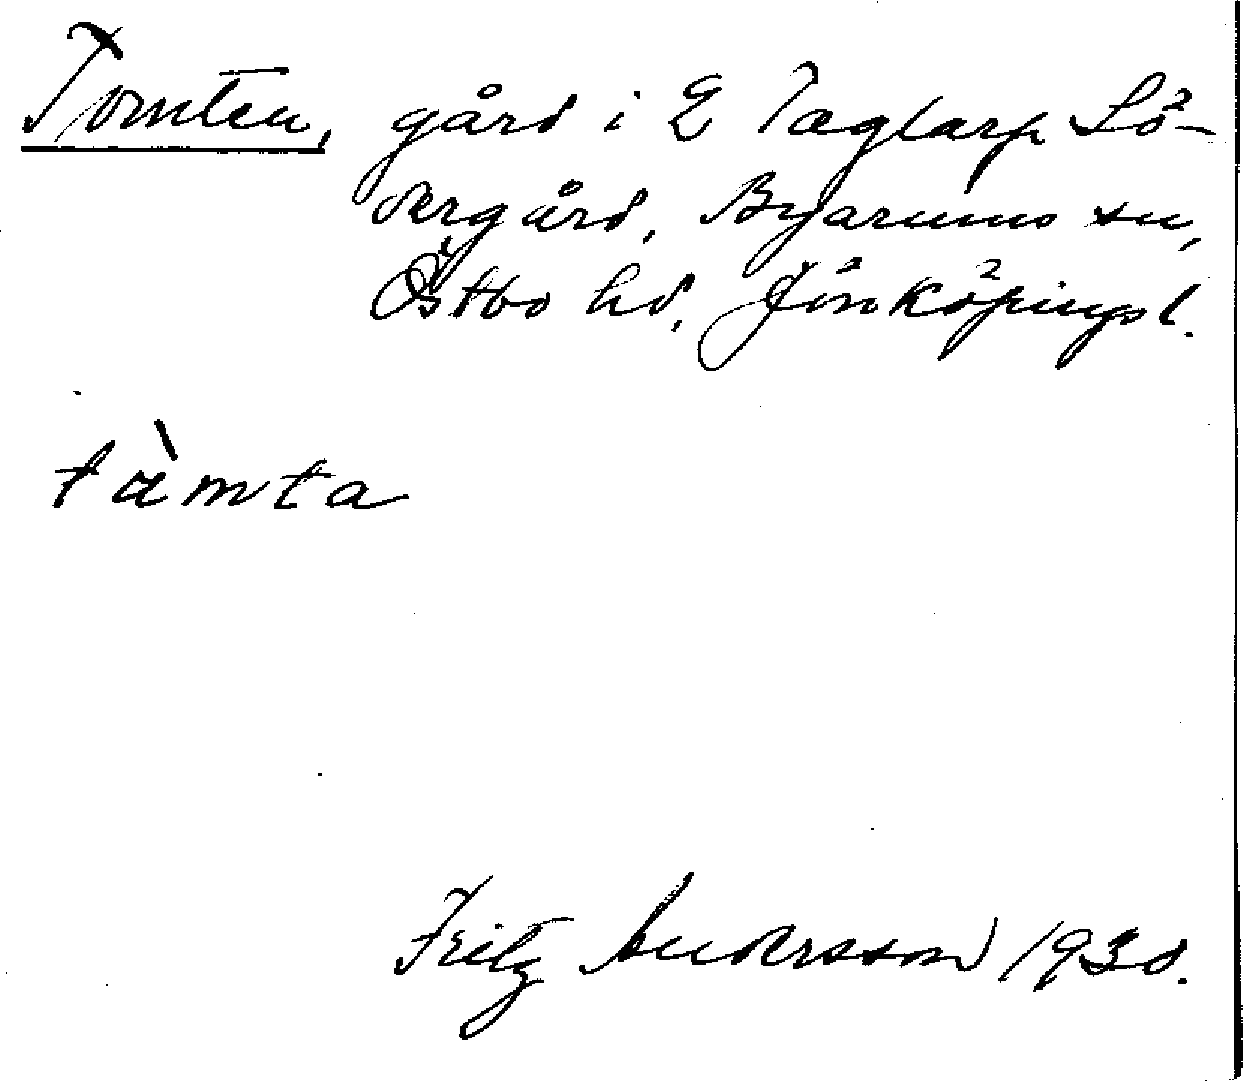 Tomten, gård i E Taglarp Sö-
dergård, Byarums sn,
Östbo hd, Jönköpings l.
tàmta
Fritz Andersson 1930.